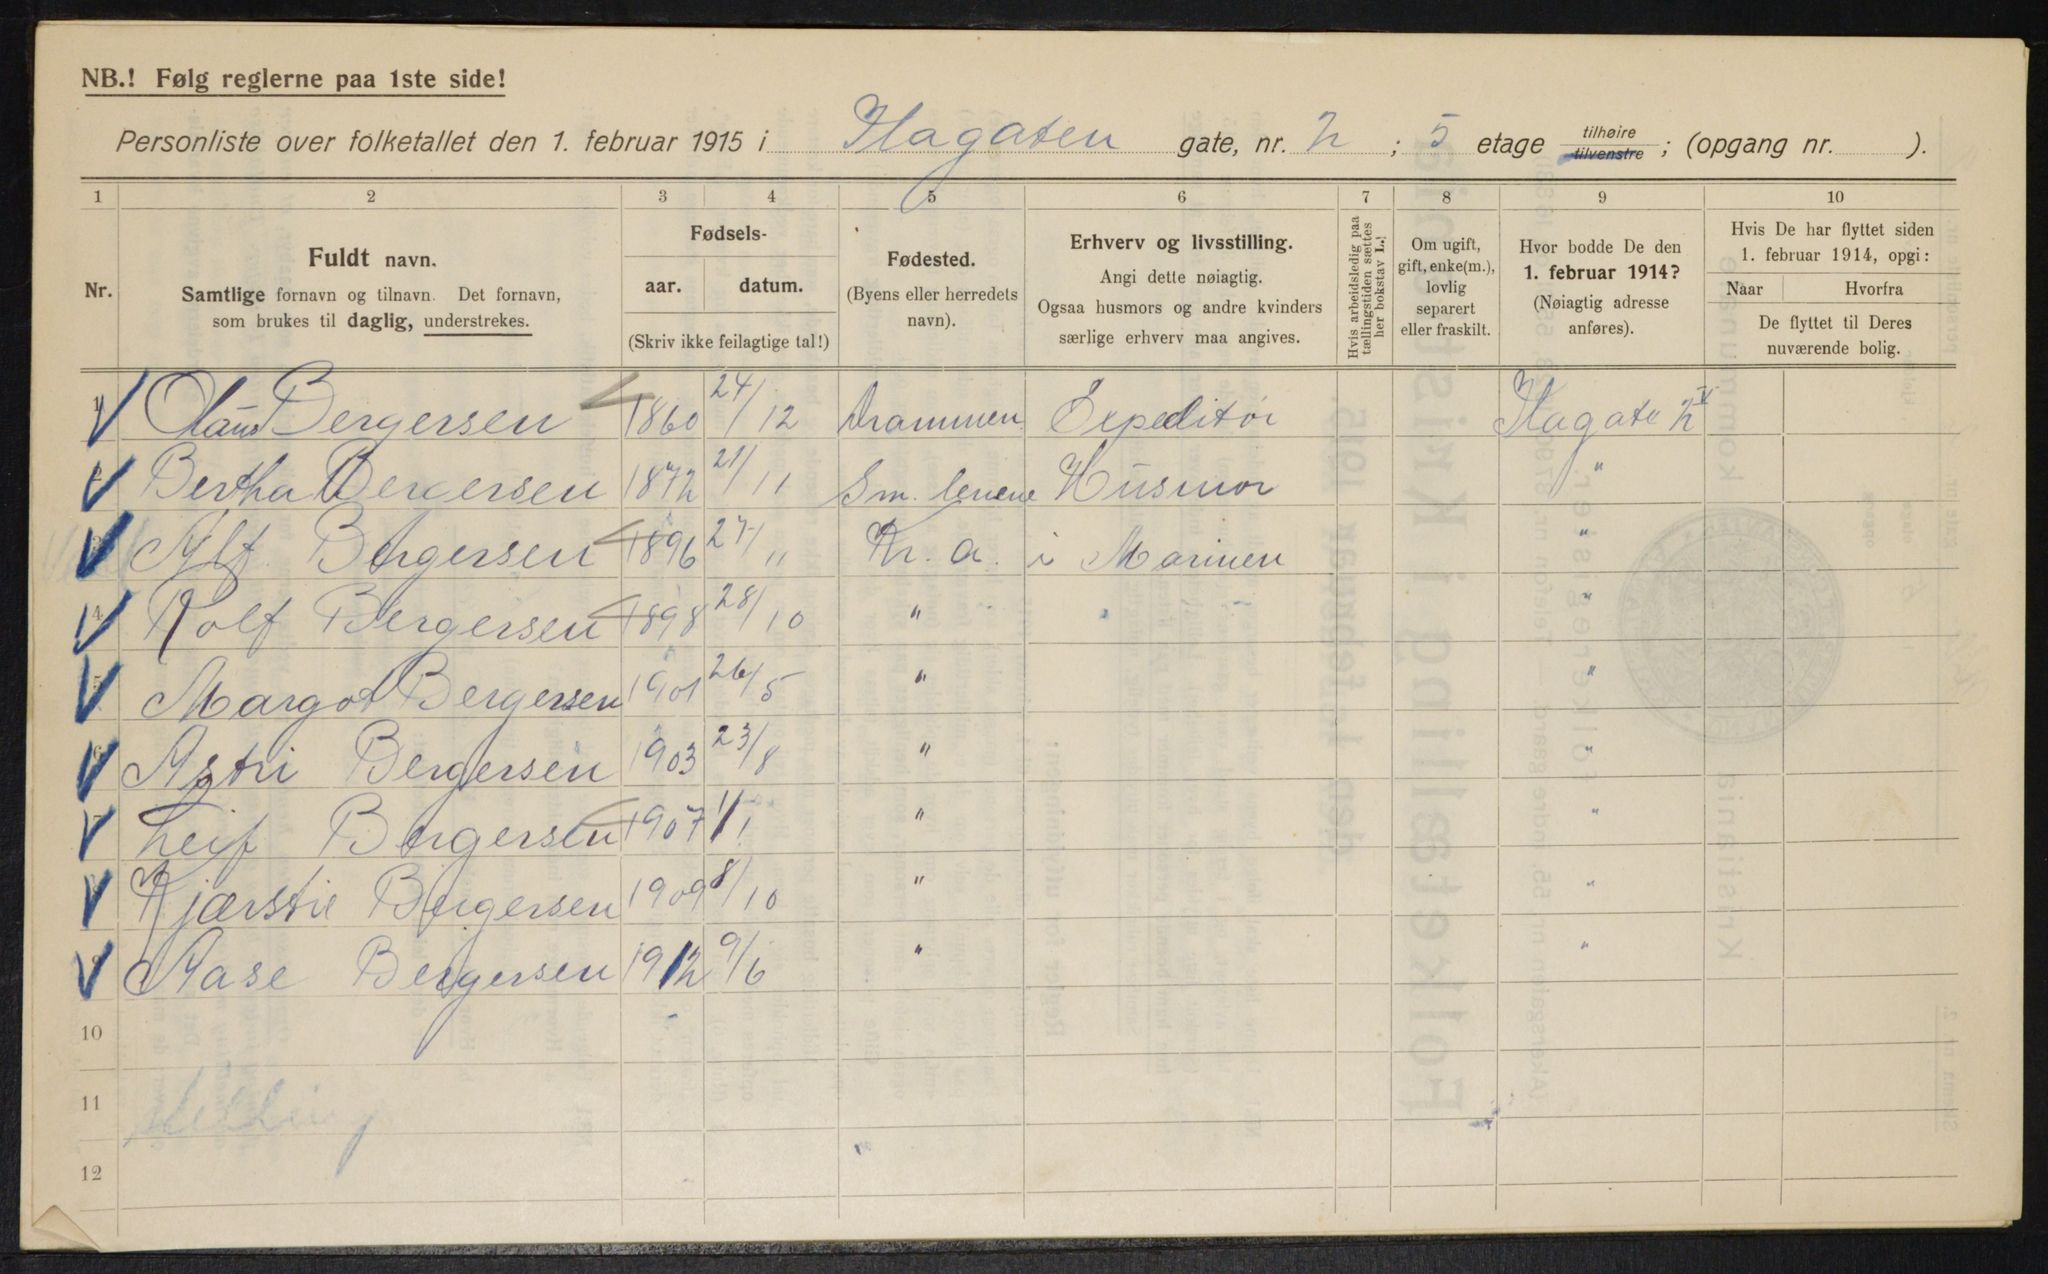 NB.! Følg reglerne paa 1ste side!
Personliste over folketallet den 1. februar 1915 i Ilagaten gate, nr. 2 ; 5 etage tilhøire tilvenstre ; (opgang nr. ).
1 2 3 4 5 6 7 8 9 10
Nr. Fuldt navn. Samtlige fornavn og tilnavn. Det fornavn, som brukes til daglig, understrekes.
Fødsels- aar. datum. (Skriv ikke feilagtige tal!)
Fødested. (Byens eller herredets navn).
Erhverv og livsstilling. Angi dette nøiagtig. Ogsaa husmors og andre kvinders særlige erhverv maa angives.
Hvis arbeidsledig paa tællingstiden sættes her bokstav L.!
Om ugift, gift, enke(m.), lovlig separert eller fraskilt.
Hvor bodde De den 1. februar 1914? (Nøiagtig adresse anføres).
Hvis De har flyttet siden 1. februar 1914, opgi: Naar Hvorfra De flyttet til Deres nuværende bolig.
1 Olaus Bergersen 1860 24/12 Drammen Expeditör Ilagata 2 V
2 Bertha Bergersen 1872 21/11 Sm. lenene Husmor "
3 Alf Bergersen 1896 27/11 Kr. a. i Marinen "
4 Rolf Bergersen 1898 28/10 " "
5 Margot Bergersen 1901 26/5 " "
6 Astri Bergersen 1903 23/8 " "
7 Leif Bergersen 1907 1/1 " "
8 Kjærstie Bergersen 1909 8/10 " "
9 Aase Bergersen 1912 9/6 " "
10
11
12